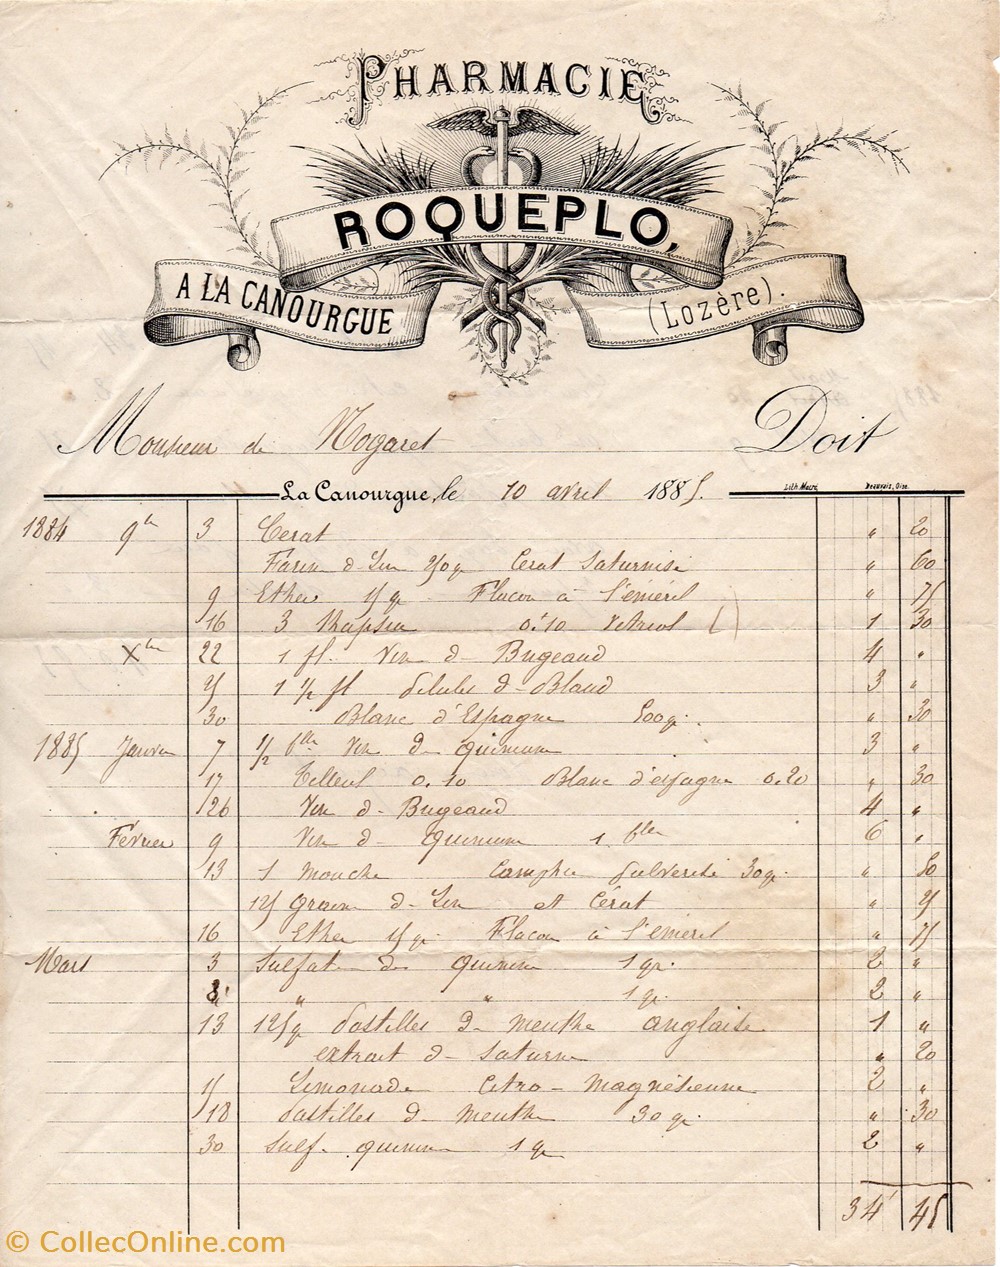 PHARMACIE
ROQUEPLO,
A LA CANOURGUE
(Lozère).
Monsieur de Nogaret Doit
La Canourgue, le 10 avril 1885.
Lith. Beauvais, Oise.
1884 9bre 3 Cerat " 20
Farine de Lin 250g Cerat Saturnisé " 60
9 Ether 15 gr Flacon à l'émeril " 75
16 3 Thapsia 0.10 Vitriol 1 30
Xbre 22 1 fl. Vin de Bugeaud 4 "
25 1 1/2 fl Pilules de Blaud 3 "
30 Blanc d'Espagne 500g. " 30
1885 Janvier 7 1/2 blle Vin de Quinium 3 "
17 Tilleul 0.10 Blanc d'espagne 0.20 " 30
26 Vin de Bugeaud 4 "
Février 9 Vin de Quinium 1 blle 6 "
13 1 mouche Camphre pulverisé 30g. " 50
125 graine de Lin et Cérat " 25
16 Ether 15 gr. Flacon à l'émeril " 75
Mars 3 Sulfate de Quinine 1 gr. 2 "
8 " " 1 gr. 2 "
13 125g Pastilles de menthe anglaise 1 "
extrait de Saturne " 20
15 Limonade Citro-Magnésienne 2 "
18 Pastilles de menthe 30g. " 30
30 Sulf. quinine 1 gr 2 "
34 45
© CollecOnline.com